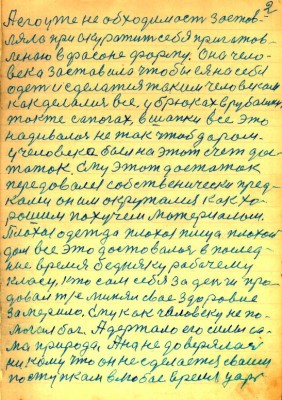 2
А его уже необходимост застов-
ляла приокуратит себя пригатов-
леною в фасоне форму. Она чело-
века заставила чтобы ея на себя
одет и сделатися таким человекам
как делалися все, у брюках в рубашки
тоже сапогах, в шапки все это
надивалося не так чтоб даром.
у человека был на этот счет дос-
таток. Ему этот достаток
передовался собственически пред-
ками он им окруталися как хо-
рошим похучем материалом.
Плохая одежда плохая пища плохой
дом все это достовалося в послед-
ние время бедняку рабочему
класу, кто сам себя за денги про-
довал т/е минял свае здоровие
за мерило. Ему как человеку не по-
могал бог. А держало его силы са-
ма природа. Ана не доверялася
ни кому что он не сделается своим
поступкам в любое время удар